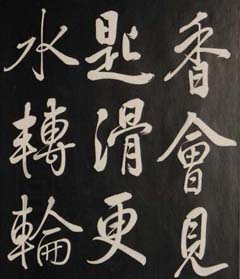 香會見
匙滑更
水轉輪